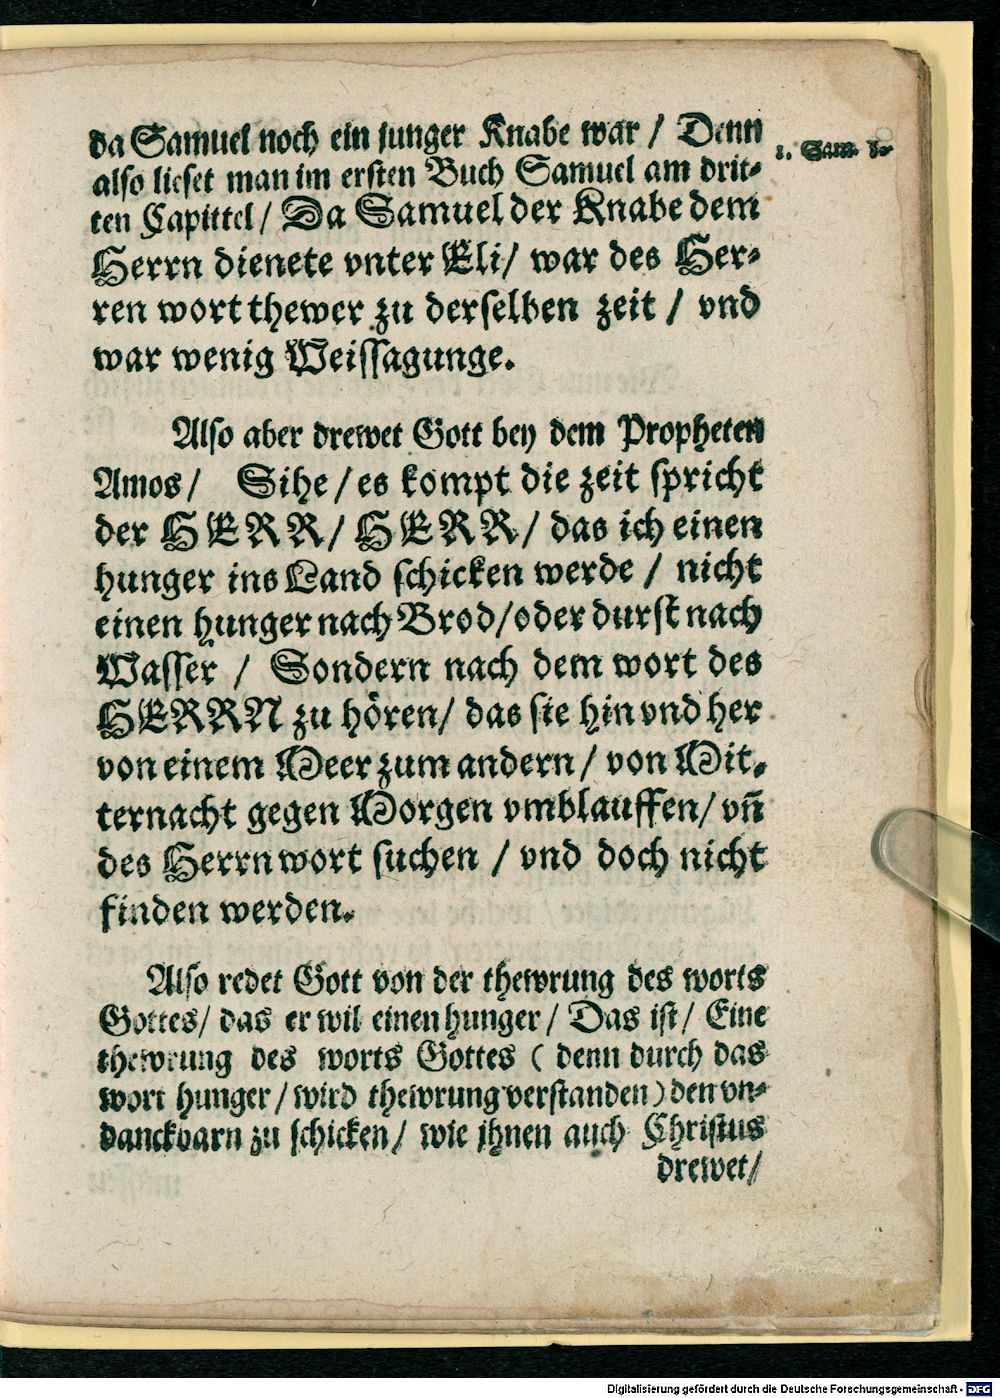 da Samuel noch ein junger Knabe war / Denn
1. Sam. 3.
also lieset man im ersten Buch Samuel am drit-
ten Capittel / Da Samuel der Knabe dem
Herrn dienete vnter Eli / war des Her-
ren wort thewer zu derselben zeit / vnd
war wenig Weissagunge.
Also aber drewet Gott bey dem Propheten
Amos / Sihe / es kompt die zeit spricht
der HERR / HERR / das ich einen
hunger ins Land schicken werde / nicht
einen hunger nach Brod / oder durst nach
Wasser / Sondern nach dem wort des
HERRN zu hören / das sie hin vnd her
von einem Meer zum andern / von Mit-
ternacht gegen Morgen vmblauffen / vn̄
des Herrn wort suchen / vnd doch nicht
finden werden.
Also redet Gott von der thewrung des worts
Gottes / das er wil einen hunger / Das ist / Eine
thewrung des worts Gottes ( denn durch das
wort hunger / wird thewrung verstanden ) den vn-
danckbarn zu schicken / wie jhnen auch Christus
drewet /
Digitalisierung gefördert durch die Deutsche Forschungsgemeinschaft - DFG